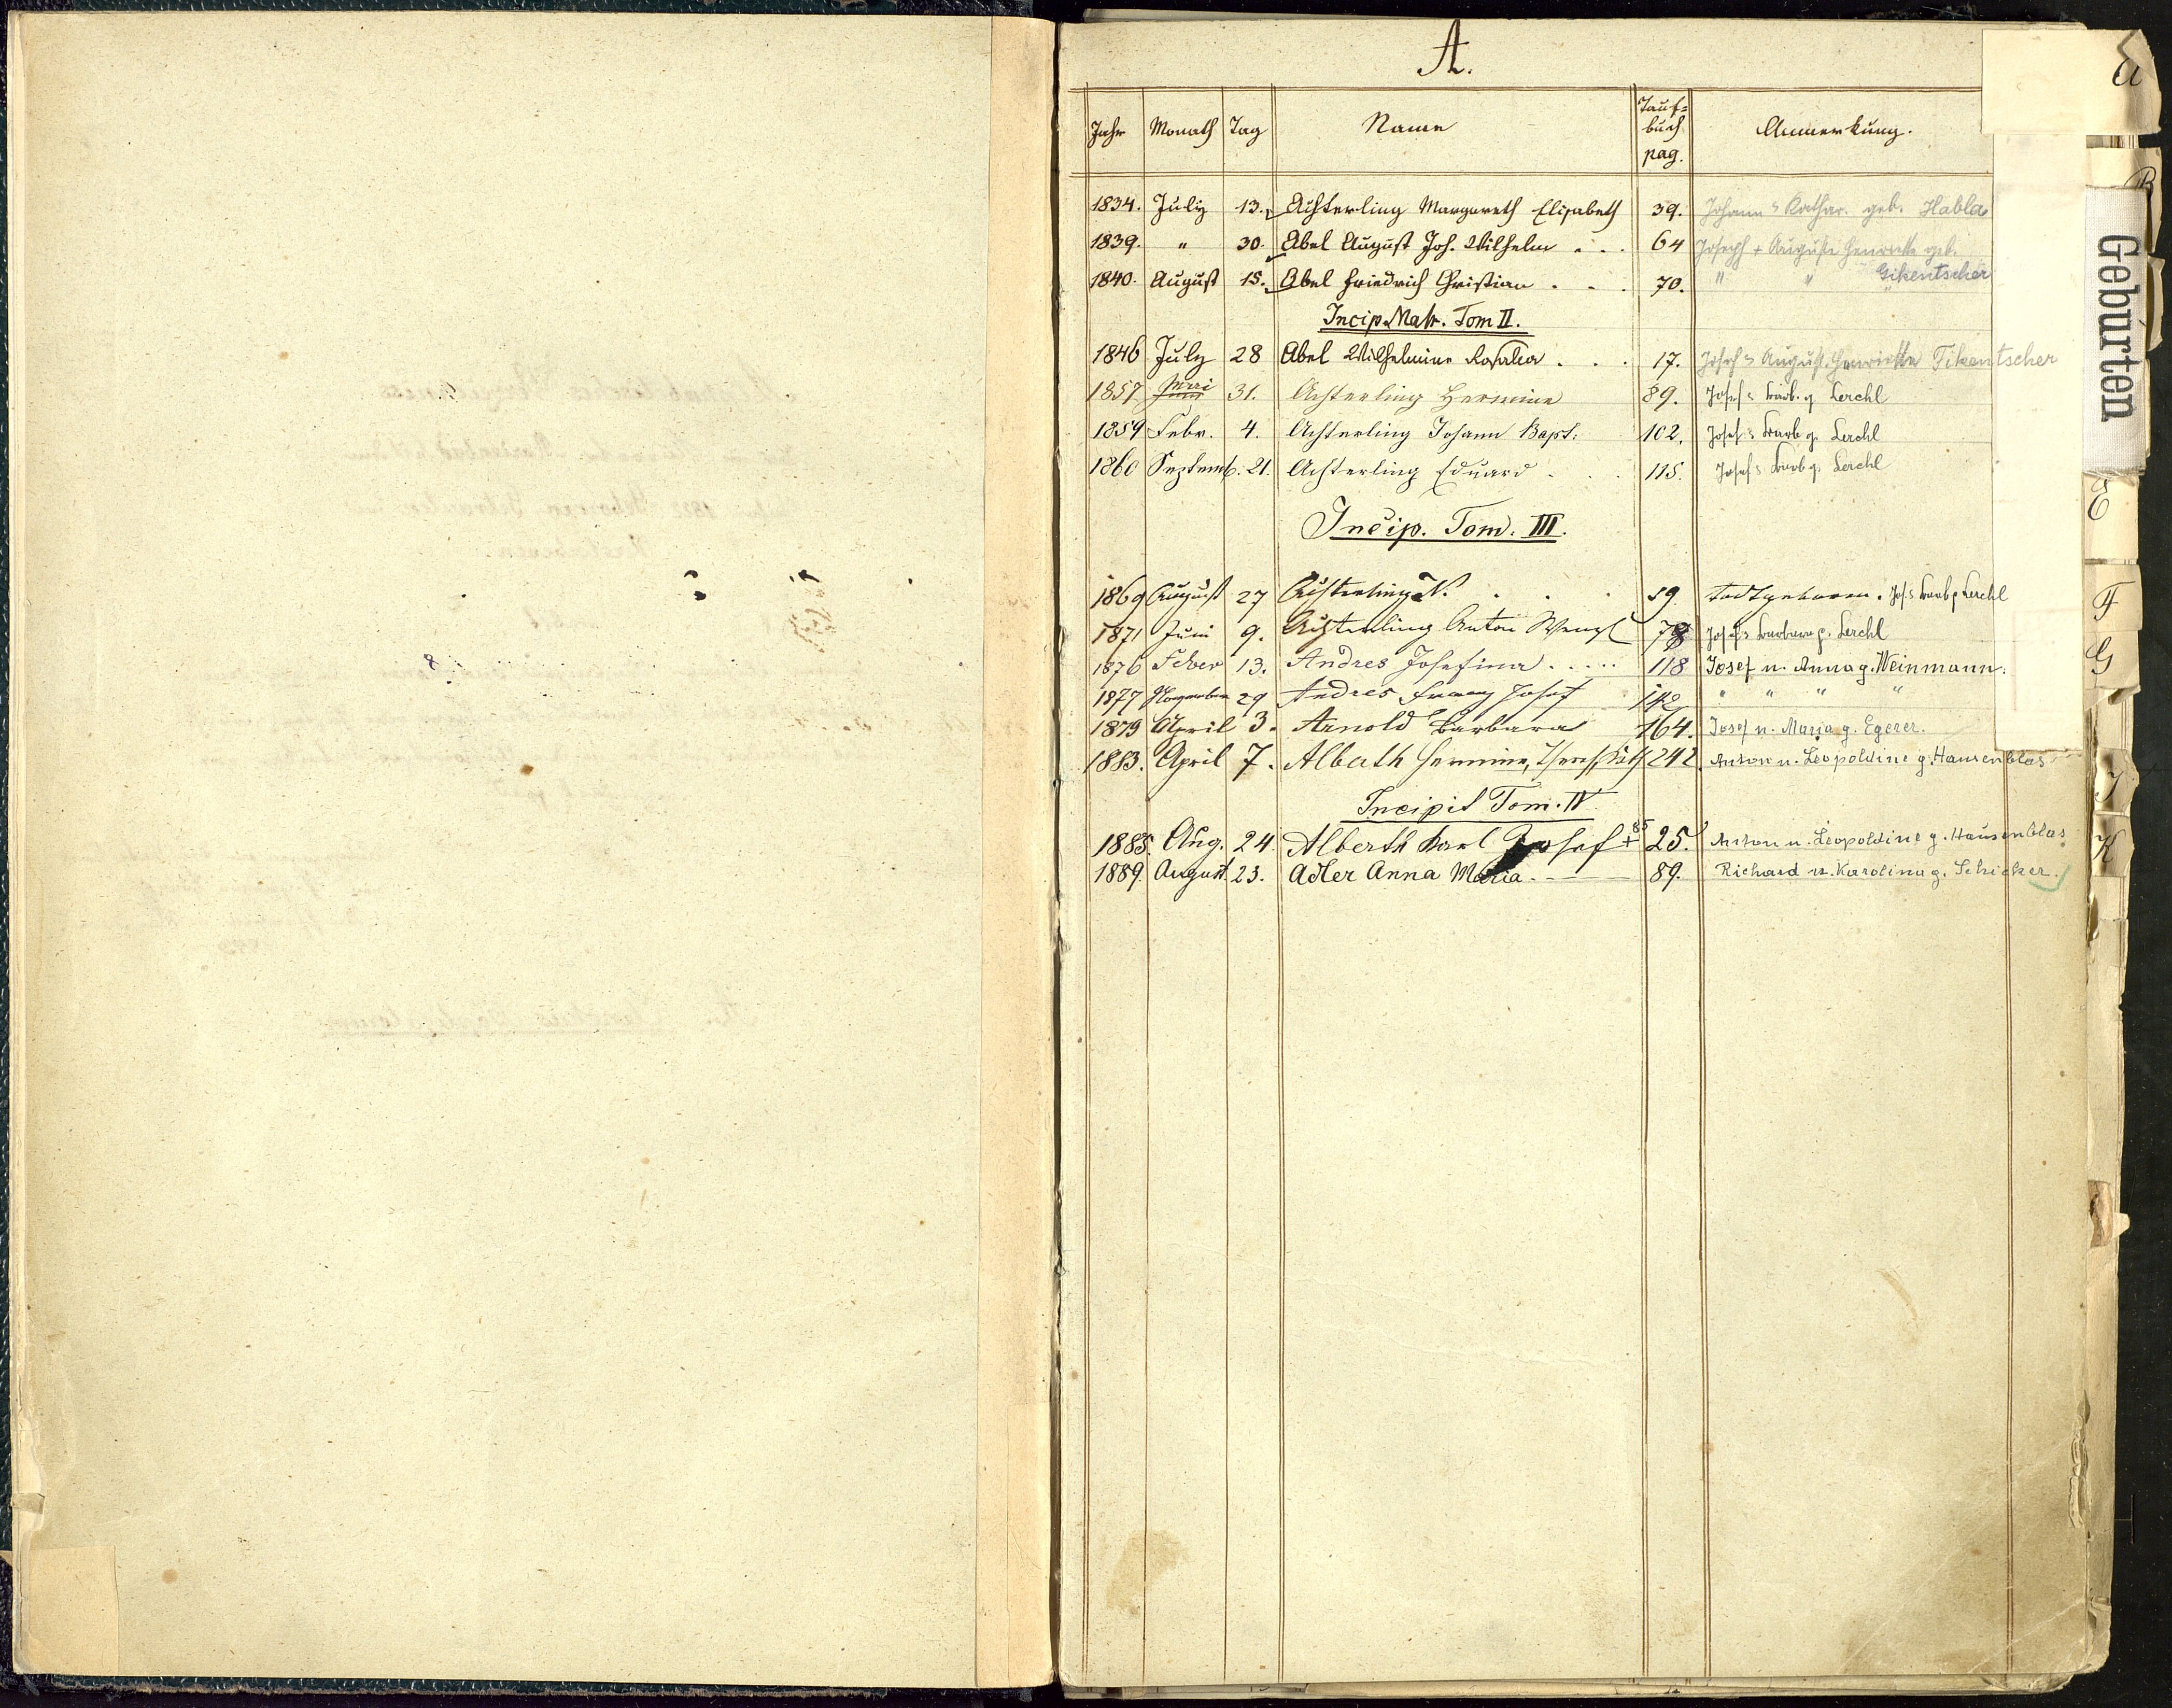 A.
Jahr Monath Tag Name Tauf=buch pag. Anmerkung.
1834. July 13. Achterling Margareth Elisabeth 39. Johann u Kathar. geb. Habla
1839. " 30. Abel August Joh. Wilhelm . . . 64 Joseph + Auguste Henriette geb.
1840. August 15. Abel Friedrich Christian . . . 70. " " Fikentscher
Incip. Matr. Tom II.
1846 July 28 Abel Wilhelmine Rosalia . . . 17. Josef u August. Henriette Fikentscher
1857 Mai 31. Achterling Hermine 89. Josef u Barb. g. Lerchl
1859 Febr. 4. Achterling Johann Bapt: 102. Josef u Barb g. Lerchl
1860 Septemb. 21. Achterling Eduard . . . 115. Josef u Barb g. Lerchl
Incip. Tom. III.
1869 August 27 Achterling N. . . . 59 todtgeboren. Jos. u Barb g. Lerchl
1871 Juni 9. Achterling Anton Wenzl 78 Josef u Barbara g. Lerchl
1876 Feber 13. Andres Josefina . . . . . 118 Josef u. Anna g. Weinmann.
1877 November 29 Andres Franz Josef 142 " " " "
1879 April 3. Arnold Barbara 164. Josef u. Maria g. Egerer.
1883. April 7. Alberth Hermine, Theres, Kath 242 Anton u. Leopoldine g. Hausenblas
Incipit Tom. IV
1885. Aug. 24. Alberth Karl Josef + 85 25. Anton u. Leopoldine g. Hausenblas
1889. August. 23. Adler Anna Maria. 89. Richard u. Karolina g. Schicker.
B
Geburten
E
F
G
J
K